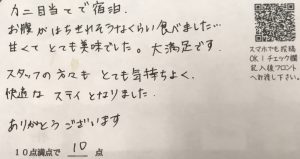 カニ目当てで宿泊.
お腹がはちきれそうなくらい食べました…
甘くてとても美味でした。大満足です.
スタッフの方々も とても気持ちよく、
快適な ステイとなりました.
ありがとうございます
10点満点で 10 点
スマホでも投稿
OK！チェック欄
記入後フロント
へお渡し下さい。